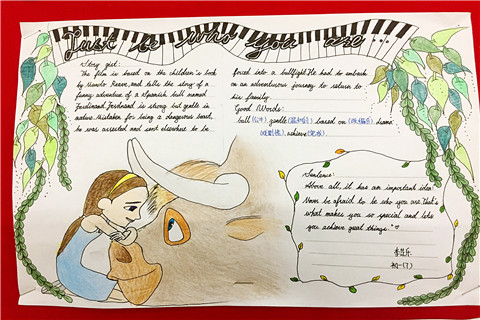 Just be who you are...
Story gist:
The film is based on the children's book
by Munro Leave, and tells the story of a
funny adventure of a Spanish bull named
Ferdinand. Ferdinand is strong but gentle in
nature. Mistaken for being a dangerous beast,
he was arrested and sent elsewhere to be
forced into a bullfight. He had to embark
on an adventurous journey to return to
his family.
Good Words:
bull (公牛) gentle (温和的) based on (改编自) drama
(戏剧性) achieve (完成)
Sentence:
Above all, it has an important idea:
Never be afraid to be who you are. That's
what makes you so special and lets
you achieve great things."
乐
初一(7)